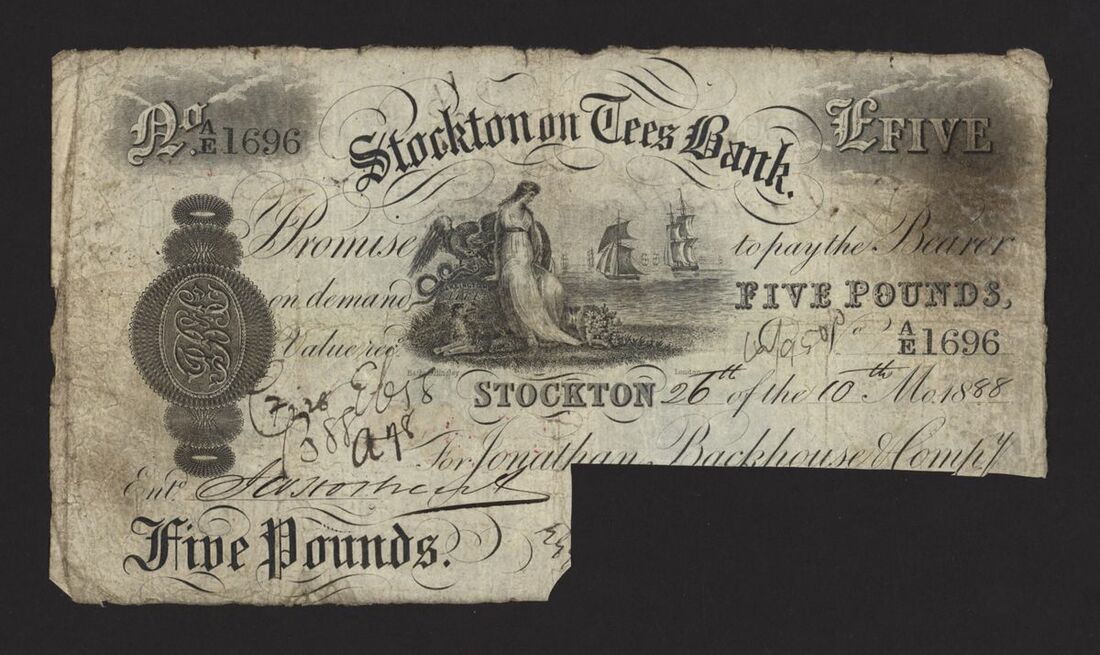 No. A/E 1696
Stockton on Tees Bank.
£FIVE
I Promise to pay the Bearer
on demand FIVE POUNDS,
Value rec^d A/E 1696
London
STOCKTON 26th of the 10th Mo. 1888
For Jonathan Backhouse & Comp^y
Ent^d
Five Pounds.